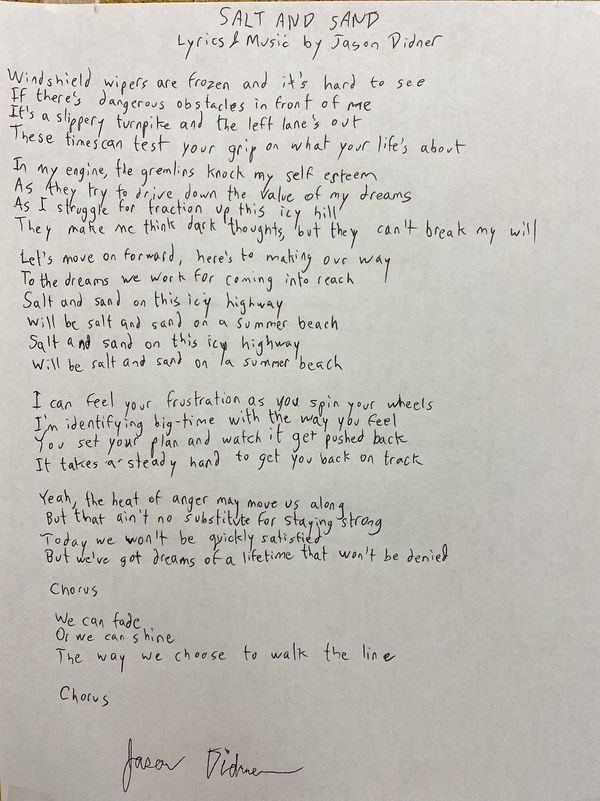 SALT AND SAND
Lyrics & Music by Jason Didner
Windshield wipers are frozen and it's hard to see
If there's dangerous obstacles in front of me
It's a slippery turnpike and the left lane's out
These times can test your grip on what your life's about
In my engine, the gremlins knock my self esteem
As they try to drive down the value of my dreams
As I struggle for traction up this icy hill
They make me think dark thoughts, but they can't break my will
Let's move on forward, here's to making our way
To the dreams we work for coming into reach
Salt and sand on this icy highway
Will be salt and sand on a summer beach
Salt and sand on this icy highway
Will be salt and sand on a summer beach
I can feel your frustration as you spin your wheels
I'm identifying big-time with the way you feel
You set your plan and watch it get pushed back
It takes a steady hand to get you back on track
Yeah, the heat of anger may move us along
But that ain't no substitute for staying strong
Today we won't be quickly satisfied
But we've got dreams of a lifetime that won't be denied
Chorus
We can fade
Or we can shine
The way we choose to walk the line
Chorus
Jason Didner